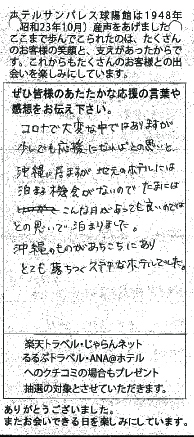 ホテルサンパレス球陽館は1948年
(昭和23年10月)産声をあげました
ここまで歩んでとられたのは、たくさん
のお客様の笑顔と、支えがあったからで
す。これからもたくさんのお客様との出
会いを楽しみにしています。
ぜひ皆様のあたたかな応援の言葉や
感想をお伝え下さい。
コロナで大変な中ではありますが
少しでも応援になればと思いと
沖縄に居ますが地元のホテルには
泊まる機会がないので たまには
こんな日があっても良いのでは
との思いで泊まりました。
沖縄のものがあちこちにあり
とても落ちつくステキなホテルでした。
楽天トラベル・じゃらんネット
るるぶトラベル・ANA@ホテル
へのクチコミの場合もプレゼント
抽選の対象とさせていただきます。
ありがとうございました。
またお会いできる日を楽しみにしています。